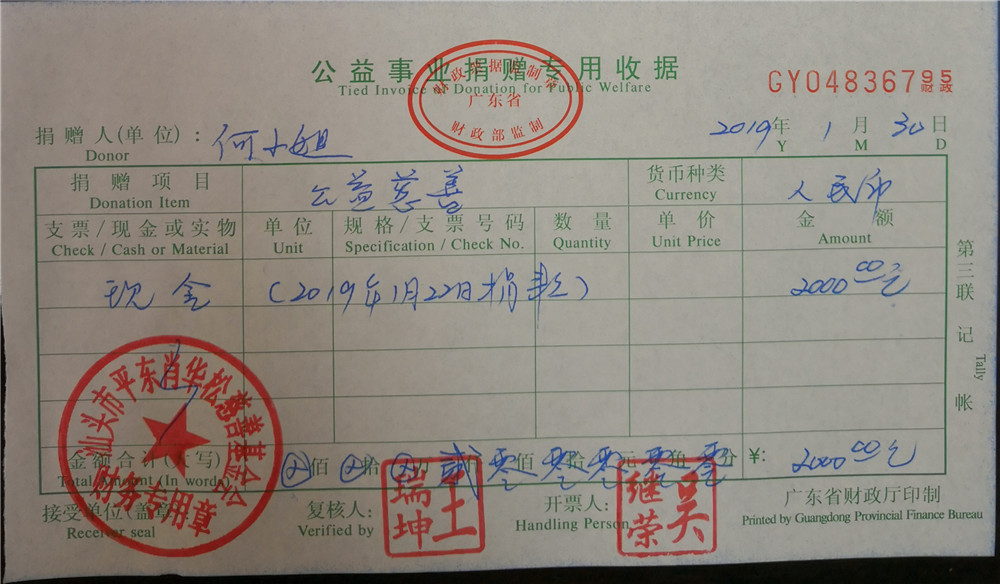 公益事业捐赠专用收据
Tied Invoice of Donation for Public Welfare
广东省
财政部监制
GY04836795
财政
捐赠人(单位): 何小姐 2019年 1月 30日
Donor Y M D
捐赠项目 公益慈善 货币种类 人民币
Donation Item Currency
支票/现金或实物 单位 规格/支票号码 数量 单价 金额
Check / Cash or Material Unit Specification / Check No. Quantity Unit Price Amount
现金 (2019年1月22日捐款) 2000.00元
第三联 记帐
Tally
金额合计(大写) 佰 拾 万 贰仟 零佰 零拾 零元 零角 零分 ¥: 2000.00元
Total Amount (In word)
接受单位(盖章) 复核人: 开票人: 广东省财政厅印制
Receiver seal Verified by Handling Person Printed by Guangdong Provincial Finance Bureau
汕头市平东肖华松慈善基金会
财务专用章
王瑞坤
吴继荣